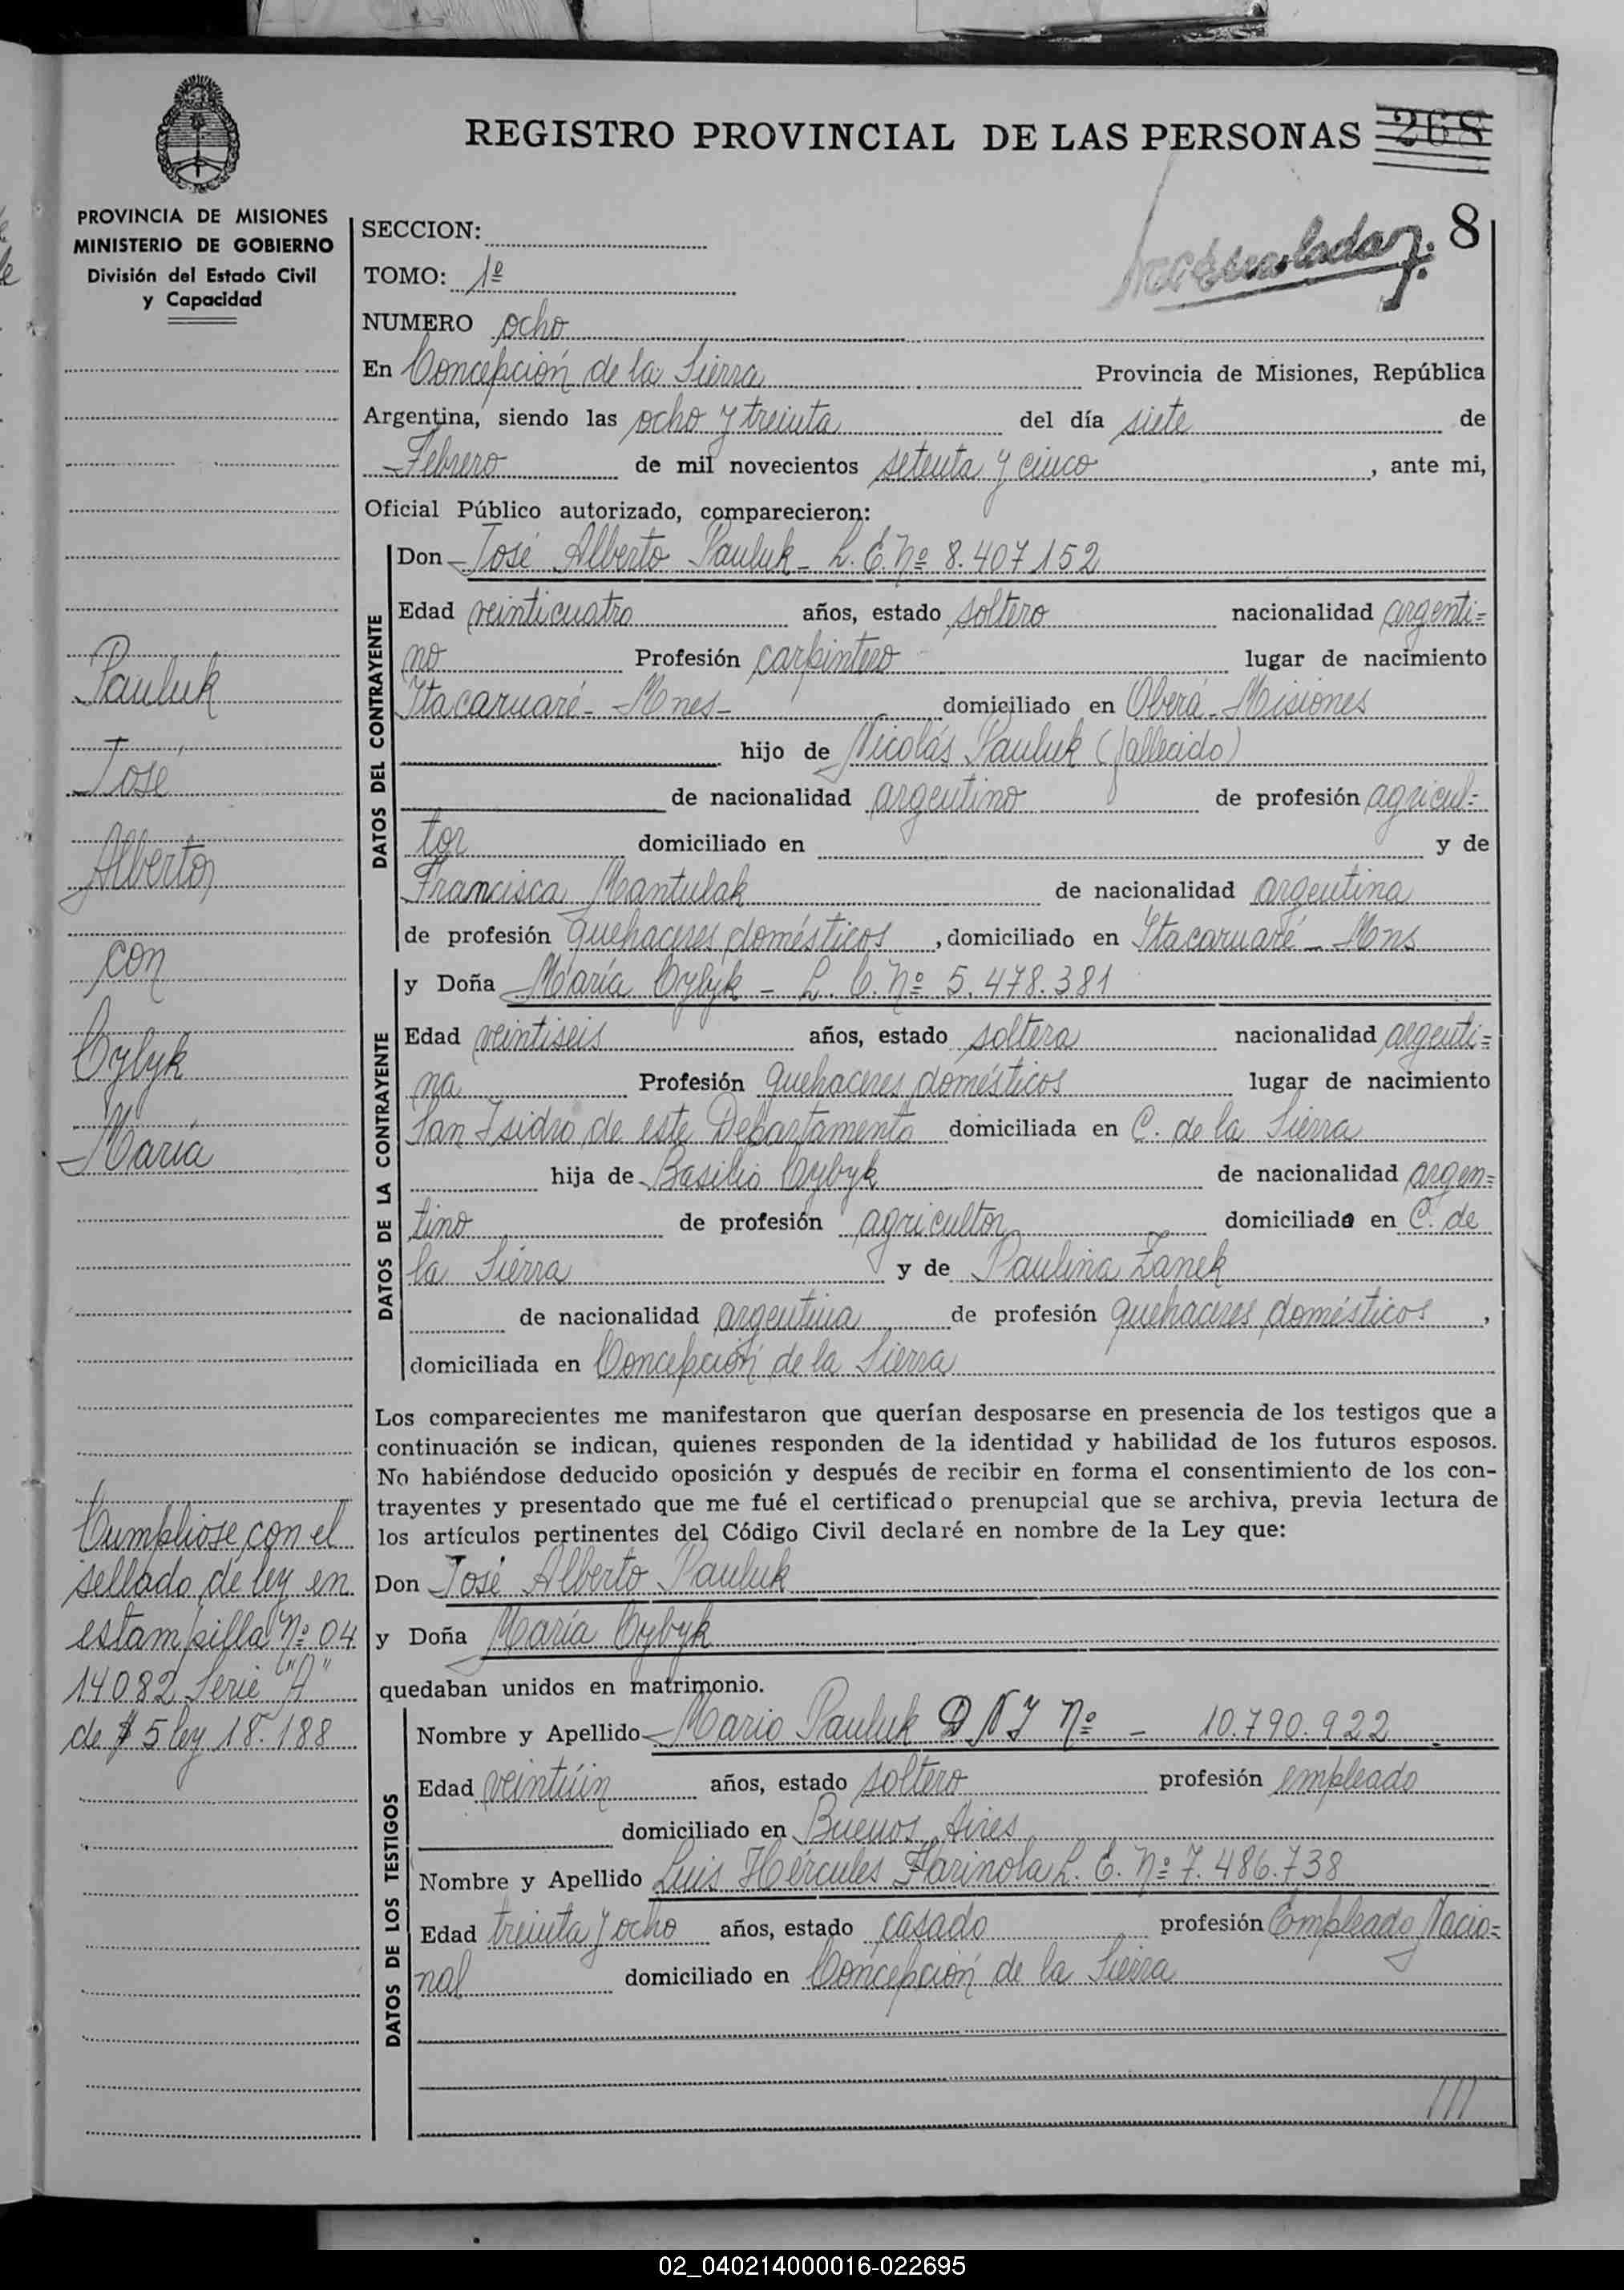 REGISTRO PROVINCIAL DE LAS PERSONAS 268
8
PROVINCIA DE MISIONES
MINISTERIO DE GOBIERNO
División del Estado Civil
y Capacidad
SECCION:
TOMO: 1º
NUMERO ocho
En Concepción de la Sierra Provincia de Misiones, República
Argentina, siendo las ocho y treinta del día siete de
Febrero de mil novecientos setenta y cinco, ante mi,
Oficial Público autorizado, comparecieron:
DATOS DEL CONTRAYENTE
Don José Alberto Pauluk - L. E. Nº 8.407.152
Edad veinticuatro años, estado soltero nacionalidad argenti=
no Profesión carpintero lugar de nacimiento
Itacaruaré - Mnes - domiciliado en Oberá - Misiones
hijo de Nicolás Pauluk (fallecido)
de nacionalidad argentino de profesión agricul=
tor domiciliado en y de
Francisca Mantulak de nacionalidad argentina
de profesión quehaceres domésticos, domiciliado en Itacaruaré - Mns
DATOS DE LA CONTRAYENTE
y Doña María Cybyk - L. C. Nº 5.478.381
Edad veintiseis años, estado soltera nacionalidad argenti=
na Profesión quehaceres domésticos lugar de nacimiento
San Isidro de este Departamento domiciliada en C. de la Sierra
hija de Basilio Cybyk de nacionalidad argen=
tino de profesión agricultor domiciliado en C. de
la Sierra y de Paulina Zanek
de nacionalidad argentina de profesión quehaceres domésticos,
domiciliada en Concepción de la Sierra
Los comparecientes me manifestaron que querían desposarse en presencia de los testigos que a
continuación se indican, quienes responden de la identidad y habilidad de los futuros esposos.
No habiéndose deducido oposición y después de recibir en forma el consentimiento de los con-
trayentes y presentado que me fué el certificado prenupcial que se archiva, previa lectura de
los artículos pertinentes del Código Civil declaré en nombre de la Ley que:
Don José Alberto Pauluk
y Doña María Cybyk
quedaban unidos en matrimonio.
DATOS DE LOS TESTIGOS
Nombre y Apellido Mario Pauluk D N I Nº - 10.790.922
Edad veintiún años, estado soltero profesión empleado
domiciliado en Buenos Aires
Nombre y Apellido Luis Hércules Farinola L. E. Nº 7.486.738
Edad treinta y ocho años, estado casado profesión Empleado Nacio=
nal domiciliado en Concepción de la Sierra
///
Pauluk
José
Alberto
con
Cybyk
María
Cumpliose con el
sellado de ley en
estampilla Nº 04
14082 Serie "A"
de $ 5 ley 18.188
02_040214000016-022695